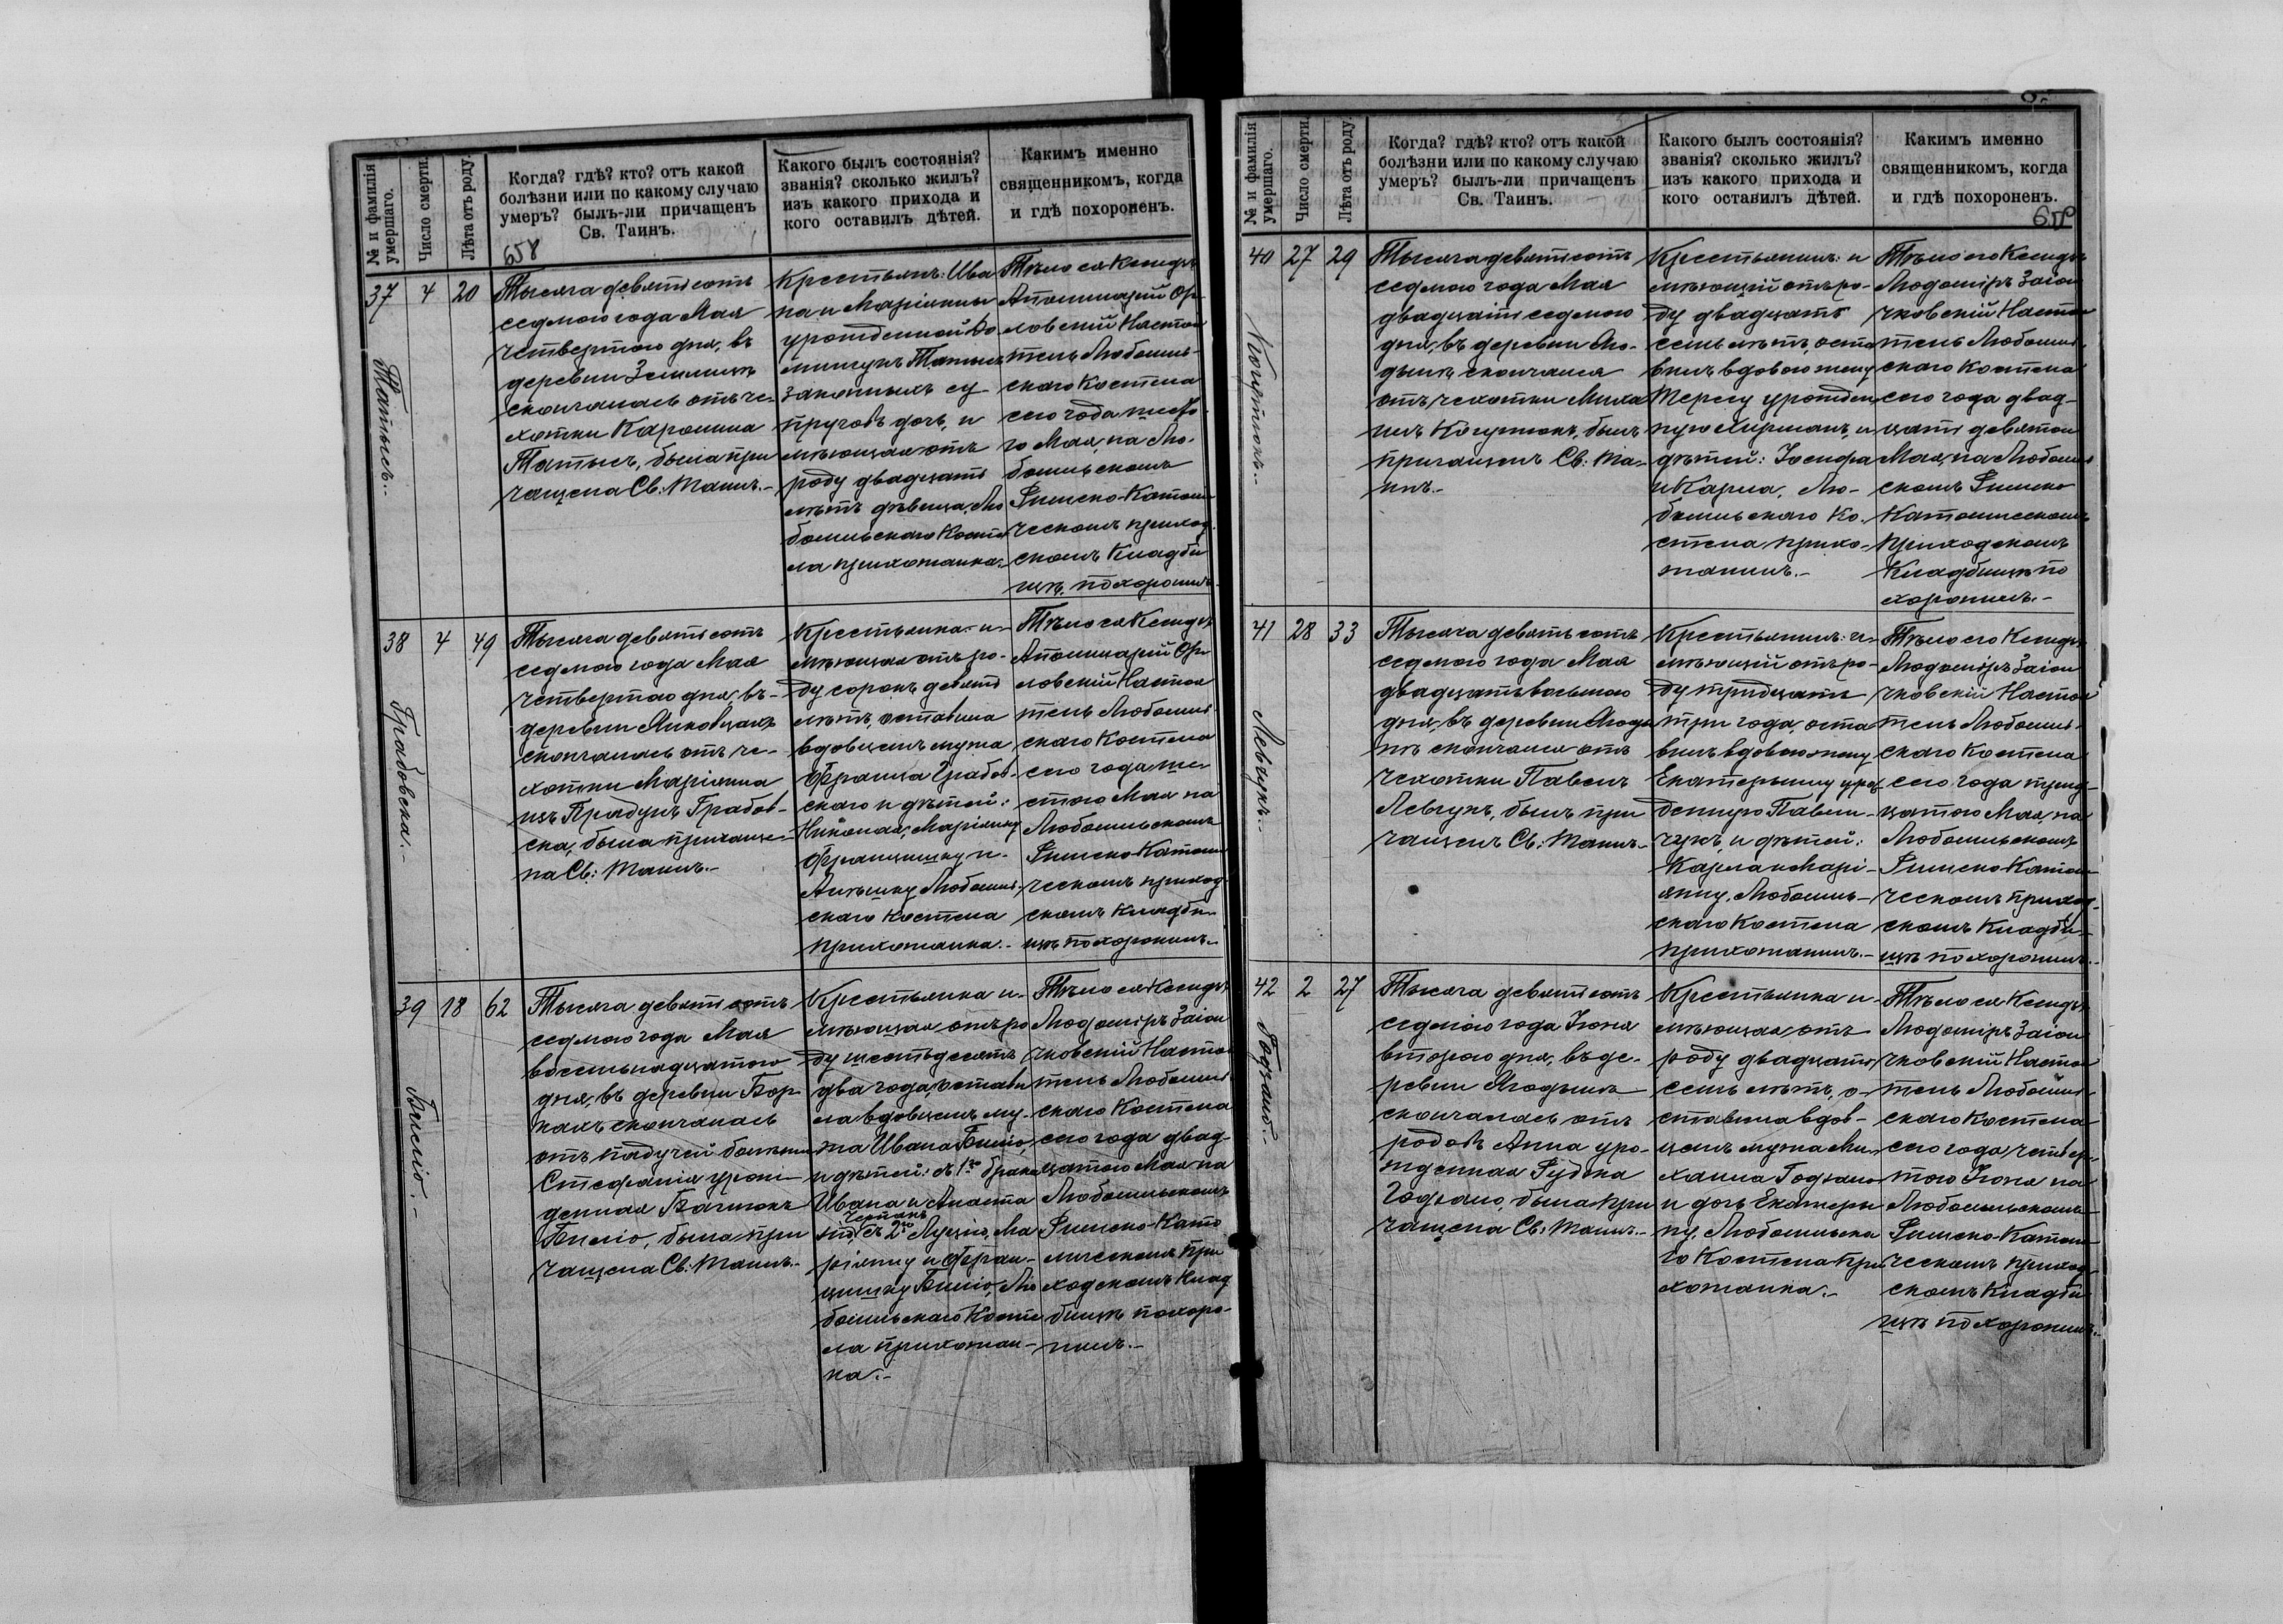 № и фамилія умершаго.
Число смерти.
Лѣта отъ роду.
Когда? гдѣ? кто? отъ какой
болѣзни или по какому случаю
умеръ? былъ-ли причащенъ
Св. Таинъ.
Какого былъ состоянія?
званія? сколько жилъ?
изъ какого прихода и
кого оставилъ дѣтей.
Какимъ именно
священникомъ, когда
и гдѣ похороненъ.
658
37
4
20
Тысяча девятьсотъ
седмого года Мая
четвертого дня, въ
деревни
скончалась отъ че-
хотки Каролина
была при
чащена Св: Таинъ.-
Крестьянъ: Ива
на и Маріянны
урожденной
законныхъ су
пруговъ дочь, и
мѣющая отъ
роду двадцать
лѣтъ дѣвица, Лю
бошльскаго Косте
ла прихожанка.-
Тѣло ея Ксендзъ
Аполинарій Ор-
ловскій Настоя
тель Любошль-
скаго Костела
сего года шесто
го Мая, на Лю-
бошльскомъ
Римско-Католи
ческомъ приход
скомъ Кладби
щѣ похоронилъ.
38
4
49
Грабовска.-
Тысяча девятьсотъ
седмого года Мая
четвертого дня, въ-
деревни Янковцахъ
скончалась отъ че-
хотки Маріянна
изъ Прадунъ Грабов-
ска, была причаще-
на Св: Таинъ.-
Крестьянка и-
мѣющая отъ ро-
ду сорокъ девять
лѣтъ, оставила
вдовцемъ мужа
Франца Грабов-
скаго и дѣтей:
Николая, Маріянну
Францишку и-
Любошль-
скаго Костела
прихожанка.-
Тѣло ея Ксендзъ
Аполинарій Ор-
ловскій Настоя
тель Любошль-
скаго Костела
сего года ше-
стого Мая на
Любошльскомъ
Римско-Католи
ческомъ приход
скомъ кладби-
щѣ похоронилъ.-
39
18
62
Тысяча девятьсотъ
седмого года Мая
восемьнадцатого
дня, въ деревни Бор
кахъ скончалась
отъ падучей болѣзни
Стефанія урож-
денная
была при
чащена Св: Таинъ.-
Крестьянка и-
мѣющая отъ ро
ду шестьдесятъ
два года, остави
ла вдовцемъ му-
жа Ивана
и дѣтей: съ 1го брака
Ивана и
съ 2го Луцію, Ма
ріянну и Фран-
цишку Лю
бошльскаго Косте
ла прихожан-
ка.-
Тѣло ея Ксендзъ
Людоміръ Заіон
чковскій Настоя
тель Любошль
скаго Костела
сего года двад-
цатого Мая на
Любошльскомъ
Римско-Като
лическомъ при
ходскомъ Клад
бищѣ похоро-
нилъ.-
№ и фамилія умершаго.
Число смерти.
Лѣта отъ роду.
Когда? гдѣ? кто? отъ какой
болѣзни или по какому случаю
умеръ? былъ-ли причащенъ
Св. Таинъ.
Какого былъ состоянія?
званія? сколько жилъ?
изъ какого прихода и
кого оставилъ дѣтей.
Какимъ именно
священникомъ, когда
и гдѣ похороненъ.
40
27
29
Тысяча девятьсотъ
седмого года Мая
двадцать седмого
дня, въ деревни Яго-
дынѣ скончался
отъ чехотки Миха
илъ былъ
причащенъ Св: Та-
инъ.-
Крестьянинъ: и
мѣющій отъ ро-
ду двадцать
семь лѣтъ, оста
вилъ вдовою жену
Терезу урожден
ную и
дѣтей: Іосифа
и Карла, Лю-
бошльскаго Ко-
стела прихо-
жанинъ.-
Тѣло его Ксендзъ
Людоміръ Заіон
чковскій Настоя
тель Любошль
скаго Костела
сего года двад-
цать девятого
Мая, на Любошль
скомъ Римско
Католическомъ
приходскомъ
Кладбищѣ по
хоронилъ.-
41
28
33
Левчукъ.-
Тысяча девятьсотъ
седмого года Мая
двадцать восьмого
дня, въ деревни Ягоды
нѣ скончался отъ
чехотки Павелъ
Левчукъ, былъ при
чащенъ Св: Таинъ.-
Крестьянинъ: и-
мѣющій отъ ро-
ду тридцать
три года, оста
вилъ вдовою жену
Екатерынну урож
денную Павли-
чукъ, и дѣтей:
Карла и Марі-
янну, Любошль-
скаго Костела
прихожанинъ.-
Тѣло его Ксендзъ
Людоміръ Заіон
чковскій Настоя
тель Любошль-
скаго Костела
сего года трид-
цатого Мая, на
Любошльскомъ
Римско Католи
ческомъ приход-
скомъ Кладби-
щѣ похоронилъ.-
42
2
27
Тысяча девятьсотъ
седмого года Іюня
второго дня, въ де-
ревни Ягодынѣ
скончалась отъ
родовъ Анна уро-
жденная Рудка
была при
чащена Св: Таинъ.-
Крестьянка и-
мѣющая отъ
роду двадцать
семь лѣтъ, о-
ставила вдов-
цемъ мужа Ми-
хаила
и дочь Екатери
ну, Любошльска
го Костела при
хожанка.-
Тѣло ея Ксендзъ
Людоміръ Заіон
чковскій Настоя
тель Любошль
скаго Костела
сего года четвер-
того Іюня на
Любошльскомъ
Римско-Католи
ческомъ приход
скомъ Кладби
щѣ похоронилъ.-